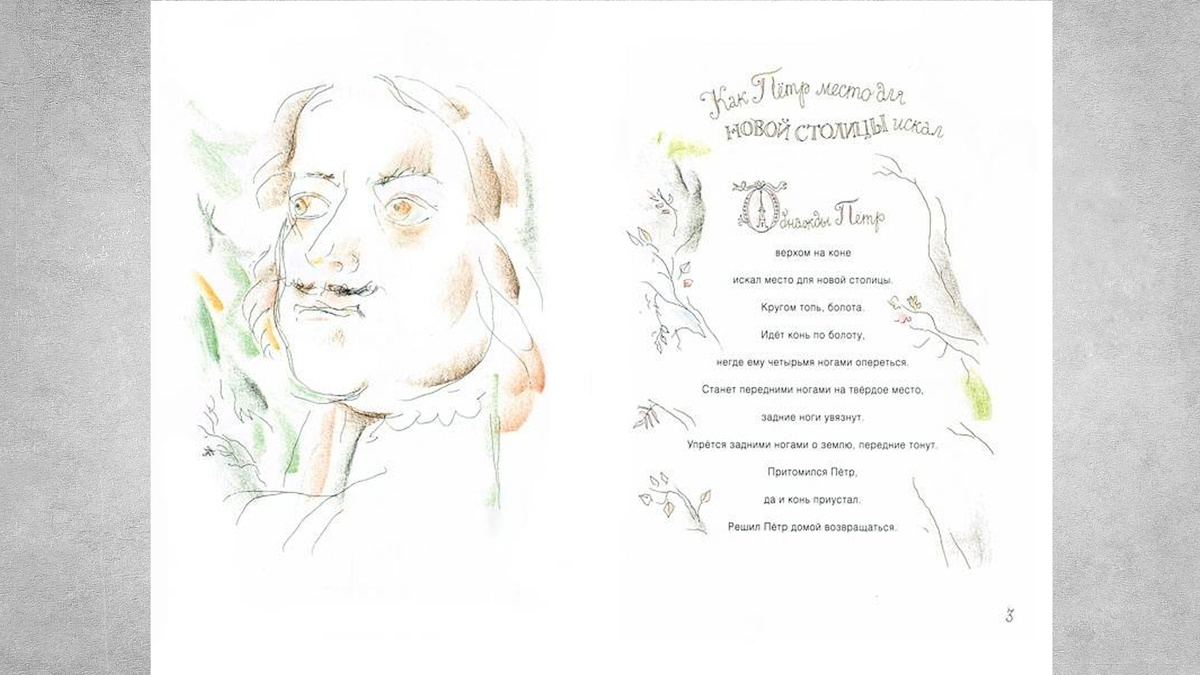 Как Пётр место для
НОВОЙ СТОЛИЦЫ искал
Однажды Пётр
верхом на коне
искал место для новой столицы.
Кругом топь, болота.
Идёт конь по болоту,
негде ему четырьмя ногами опереться.
Станет передними ногами на твёрдое место,
задние ноги увязнут.
Упрётся задними ногами о землю, передние тонут.
Притомился Пётр,
да и конь приустал.
Решил Пётр домой возвращаться.
3